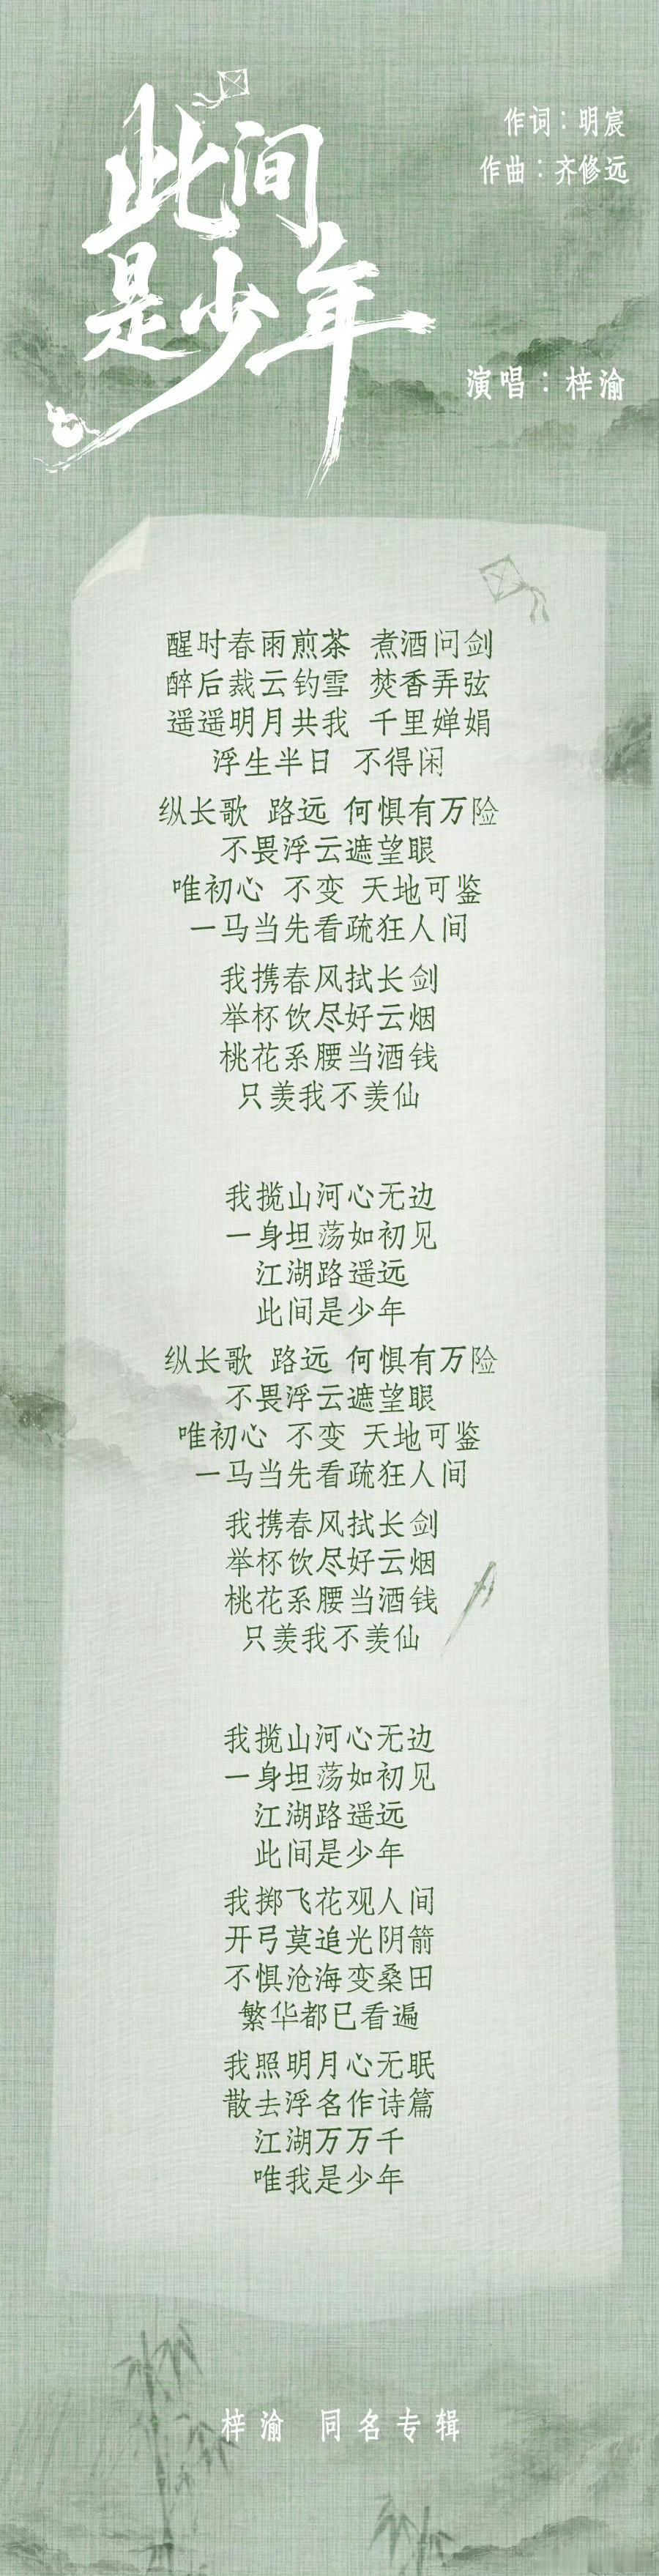 此间
是少年
作词：明宸
作曲：齐修远
演唱：梓渝
醒时春雨煎茶 煮酒问剑
醉后裁云钓雪 焚香弄弦
遥遥明月共我 千里婵娟
浮生半日 不得闲
纵长歌 路远 何惧有万险
不畏浮云遮望眼
唯初心 不变 天地可鉴
一马当先看疏狂人间
我携春风拭长剑
举杯饮尽好云烟
桃花系腰当酒钱
只羡我不羡仙
我揽山河心无边
一身坦荡如初见
江湖路遥远
此间是少年
纵长歌 路远 何惧有万险
不畏浮云遮望眼
唯初心 不变 天地可鉴
一马当先看疏狂人间
我携春风拭长剑
举杯饮尽好云烟
桃花系腰当酒钱
只羡我不羡仙
我揽山河心无边
一身坦荡如初见
江湖路遥远
此间是少年
我掷飞花观人间
开弓莫追光阴箭
不惧沧海变桑田
繁华都已看遍
我照明月心无眠
散去浮名作诗篇
江湖万万千
唯我是少年
梓渝 同名专辑